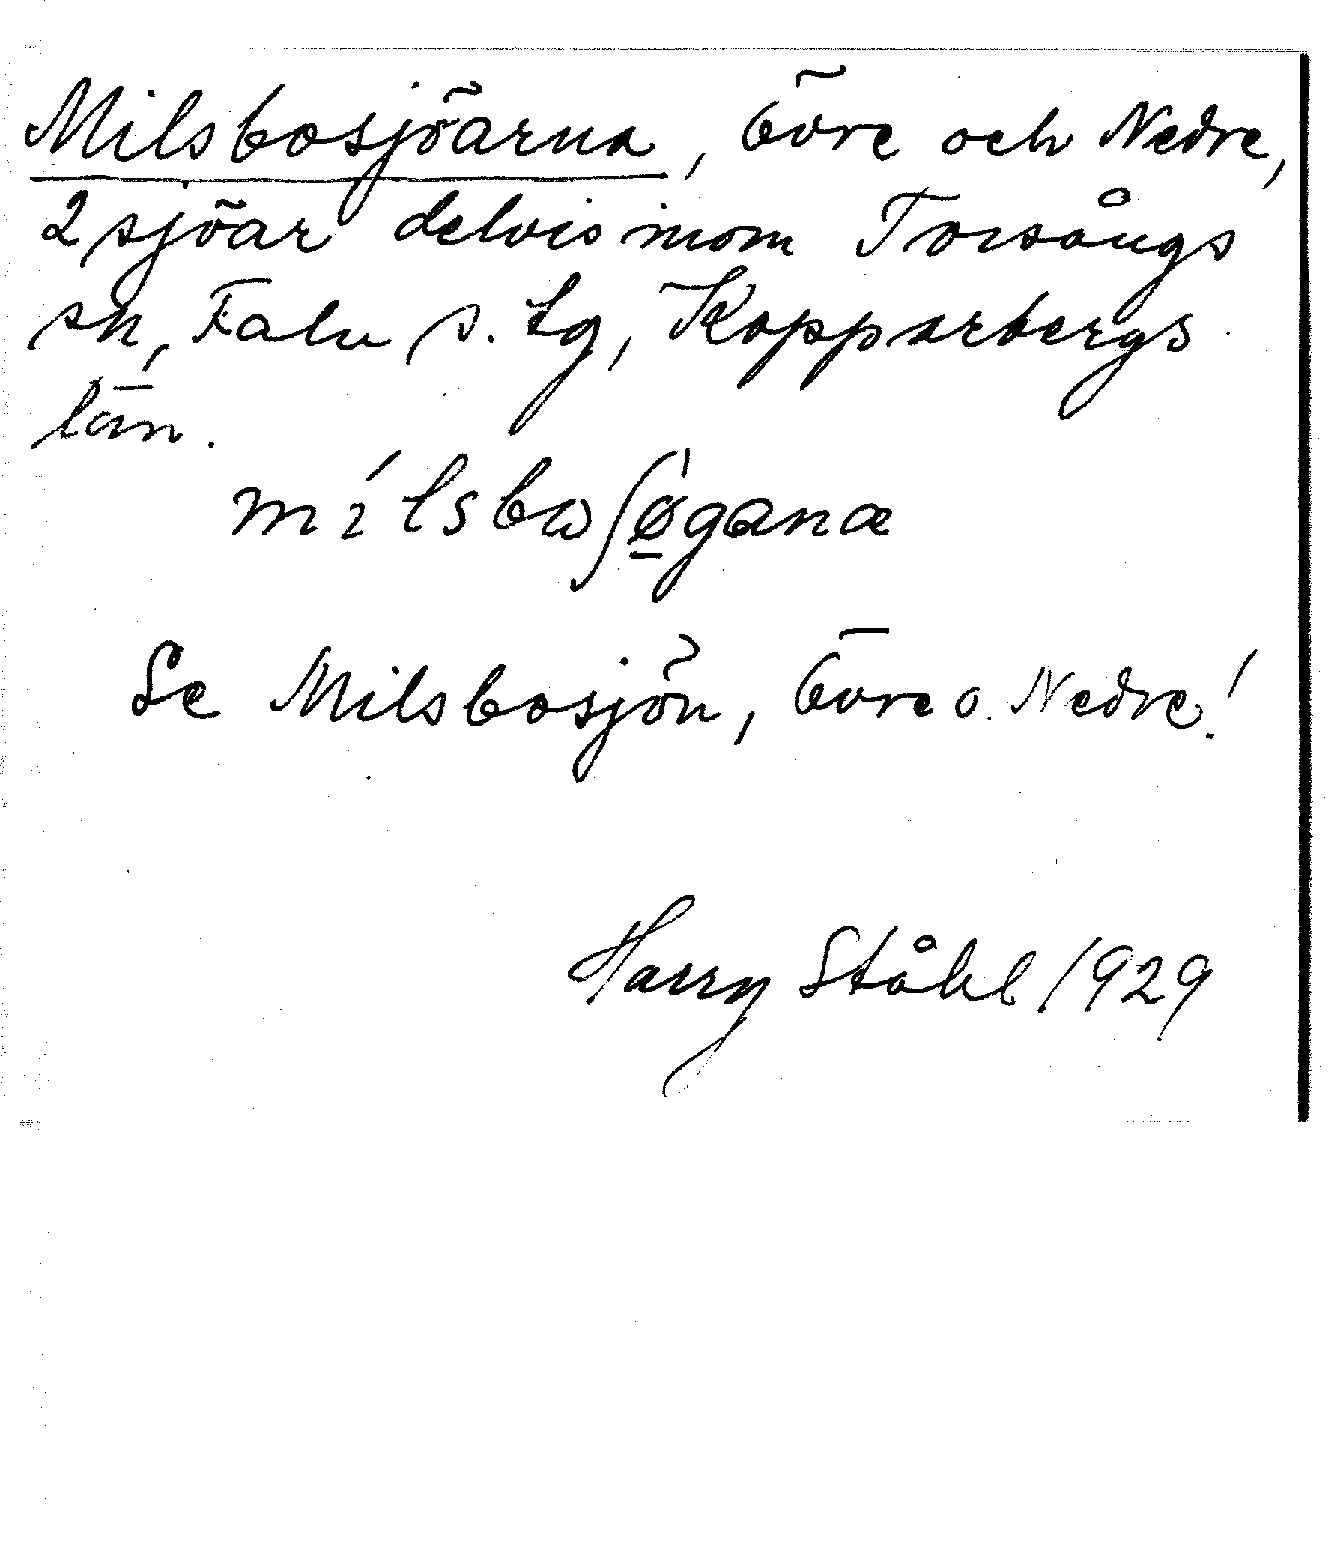 Milsbosjöarna, Övre och Nedre,
2 sjöar delvis inom Torsångs
sn, Falu s. tg, Kopparbergs
län.
mílsbωʃø̱̀ganæ
Se Milsbosjön, Övre o. Nedre!
Harry Ståhl 1929